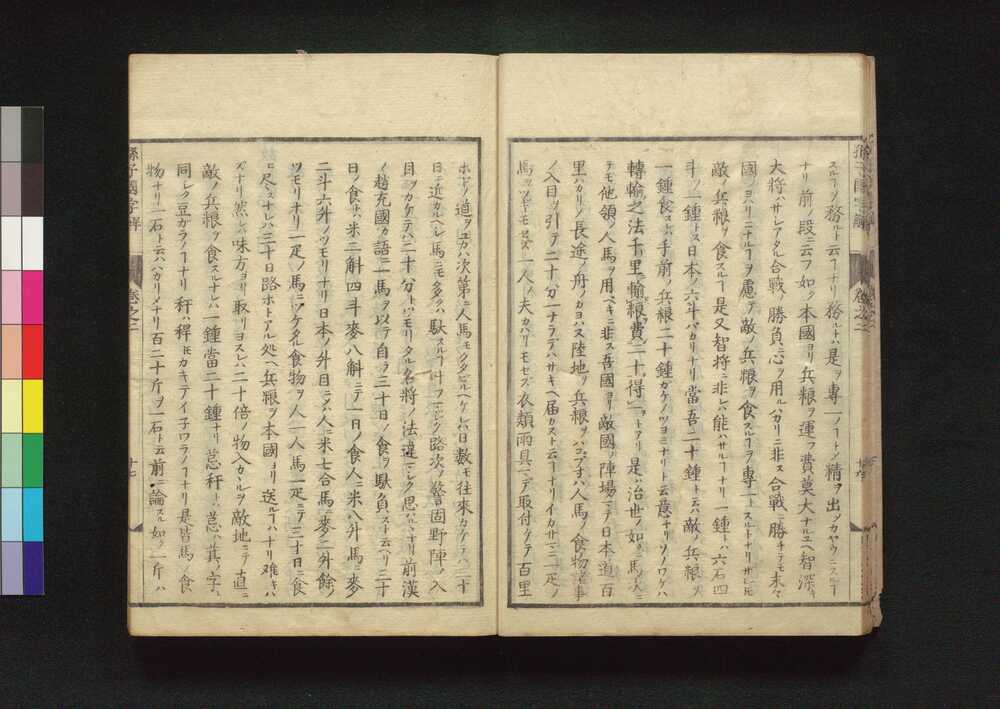 スルヿノ務ルト云フヿナリ務ルトハ是ヲ專一ノヿトメ精ヲ出ツカヤウニスルヿ
ナリ前ノ段ニ云フ如ク本國ヨリ兵粮ヲ運フ費莫大ナルユヘ智深キ
大將ハサレアタル合戰ノ勝負ニ心ヲ用ルハカリニ非ス合戰ニ勝チテモ末々
國ノヨハリニナルヿヲ慮テ敵ノ兵粮ヲ食スルヿヲ專一トスルトナリサレモ
敵ノ兵粮ヲ食スルヿ是又智將ニ非レハ能ハサルヿナリ一鍾トハ六石四
斗ノ一鍾トス日本ノ六斗バカリナリ當吾二十鍾トハ敵ノ兵粮ヲ
一鍾食スレハ手前ノ兵粮二十鍾ガケノツヨミナリト云意ナリソノワケハ
轉輸之法千里ノ輸粮費二十ノ得一ヲトアリ是ハ治世ノ如ク馬次ニ
テモ他領ノ人馬ヲ用ベキニ非ス吾國ヨリ敵國ノ陣場マテ日本道百
里ハカリノ長途ノ舟ノヨハヌ陸地ヲ兵粮ヲハコブナレハ人馬ノ食物諸事
ノ入目ヲ引テ二十分一ナラデハサキヘ届カヌト云フヿナリイカサマニモ一疋ノ
馬ヲツギモセズ一人ノ夫カハリモセズ衣類雨具マデ取付ケテ百里
ホドノ道ヲユカハ次第ニ人馬モクタビルヘケレハ日數モ往來カケテハ二十
日ニ近カルヘシ馬ニモ多クハ駄スルヿ叶フマレク路次ノ警固野陣ノ入
目ヲカケテハ二十分トツモリタル名將ノ法違マレク思ハルヽナリ前漢
ノ趙充國カ語ニ一馬ヲ以テ自ラ三十日ノ食ヲ駄負ストゝ云ヘリ三十
日ノ食トハ米三斛四斗麥八斛ニテ一日ノ食人ニ米八升馬ニ麥
二斗六升ノツモリナリ日本ノ升目ニメハ人ニ米七合馬ニ麥二升餘ノ
ツモリナリ一疋ノ馬ニツケタル食物ヲ人一人馬一疋ニテ三十日ニ食
ヒ尽スナレハ三十日路ホトアル処ヘ兵粮ヲ本國ヨリ送ルヿハナリ难キハ
ヅナリ然レハ味方ヨリ取リヨスレハ二十倍ノ物入カヽルヲ敵地ニテ直ニ
敵ノ兵粮ヲ食スルナレハ一鍾當二十鍾ナリ𦮼秆トハ𦮼ハ萁ノ字ト
同シク豆ガラノヿナリ秆ハ稈ノカキテイ子ワラノヿナリ是皆馬ノ食
物ナリ一石ト云ハハカリメナリ百二十斤ヲ一石ト云前ニ論スル如ク一斤ハ
孫子國字解
卷之二
十七